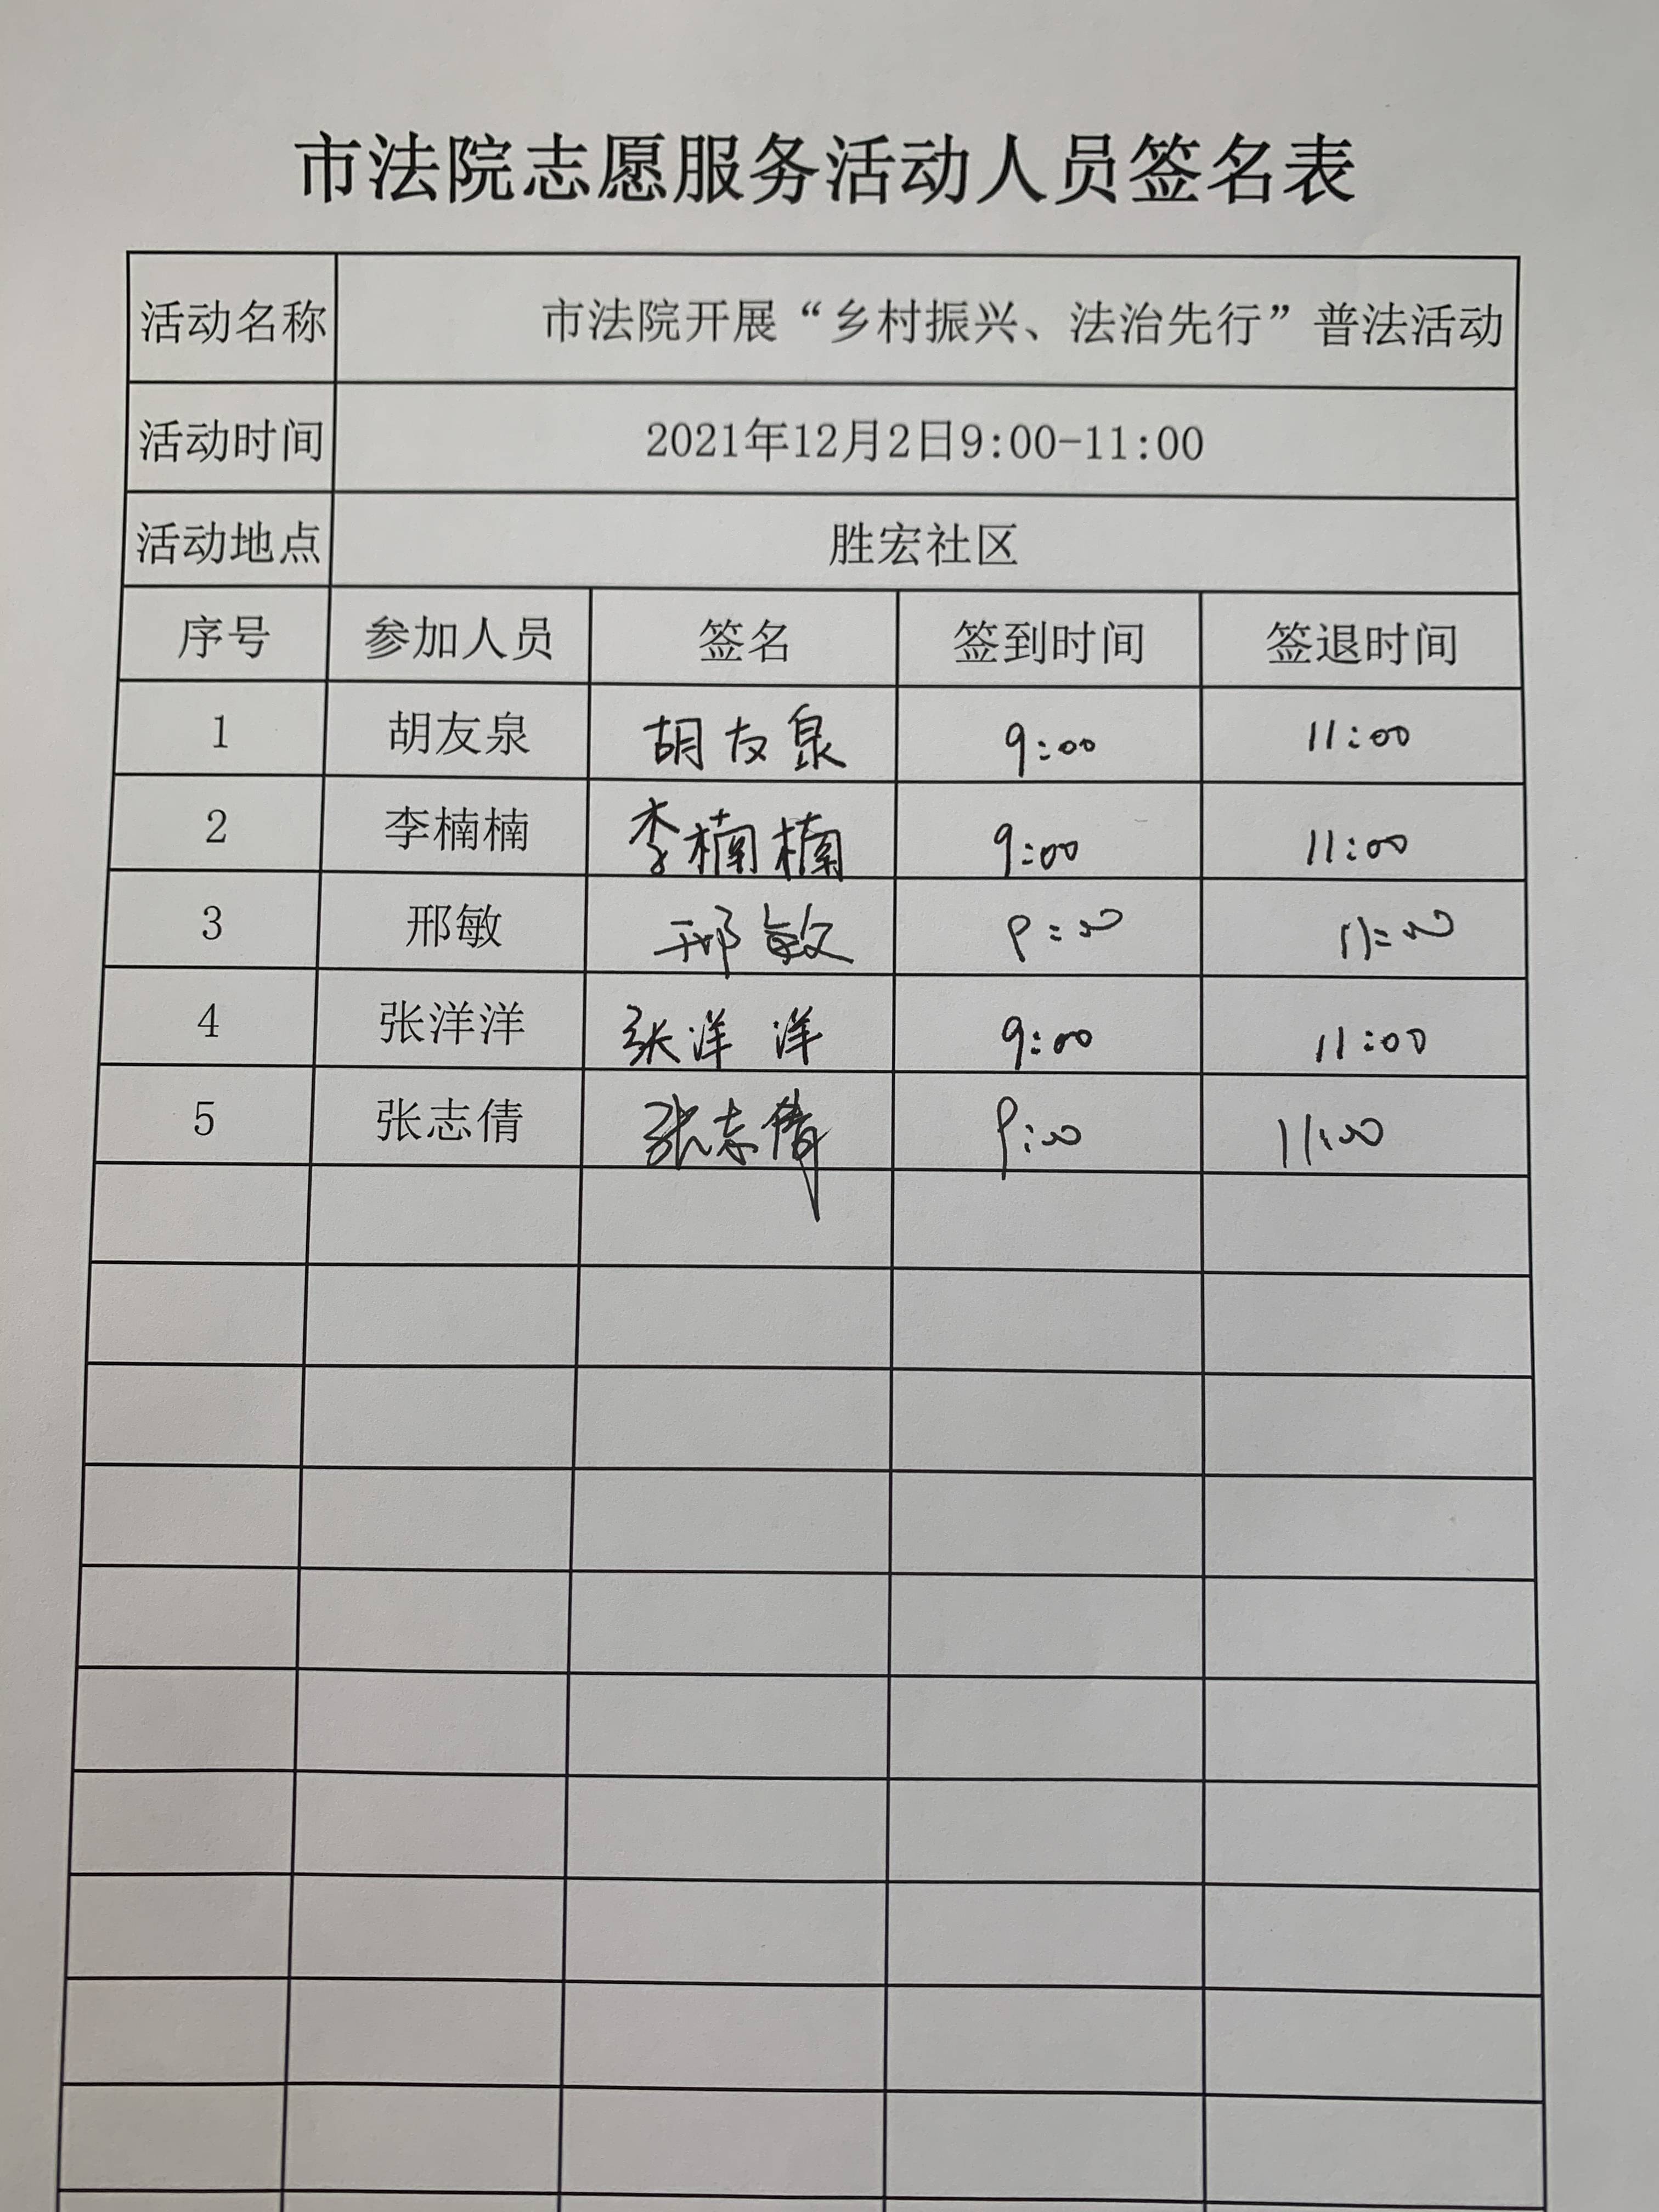 市法院志愿服务活动人员签名表
活动名称 市法院开展“乡村振兴、法治先行”普法活动
活动时间 2021年12月2日9:00-11:00
活动地点 胜宏社区
序号 参加人员 签名 签到时间 签退时间
1 胡友泉 胡友泉 9:00 11:00
2 李楠楠 李楠楠 9:00 11:00
3 邢敏 邢敏 9:00 11:00
4 张洋洋 张洋洋 9:00 11:00
5 张志倩 张志倩 9:00 11:00